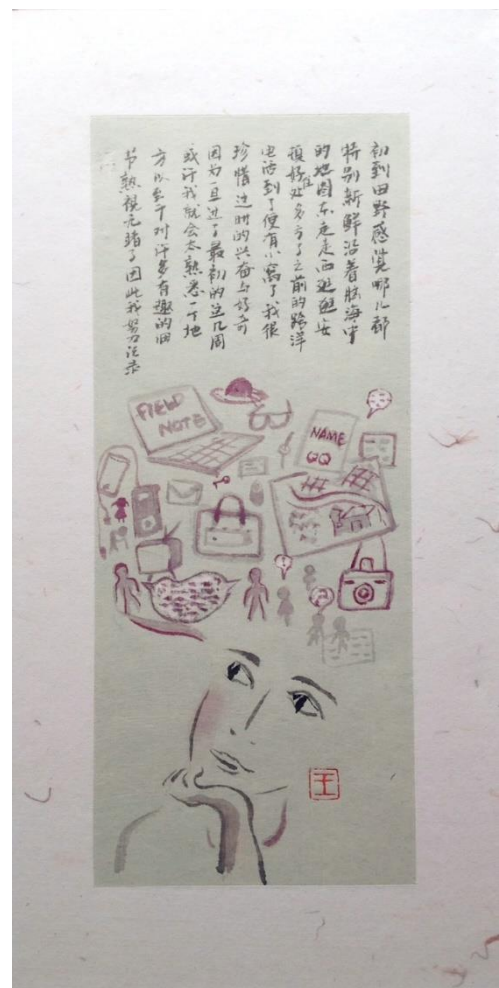 初到田野感觉哪儿都
特别新鲜沿着脑海中
的地图东走走西逛逛安
顿好住处多亏了之前的跨洋
电话到了便有小窝了我很
珍惜这时的兴奋与好奇
因为一旦过了最初的这几周
或许我就会太熟悉一个地
方以至于对许多有趣的细
节熟视无睹了因此我努力记录
FIELD
NOTE
NAME
QQ
王